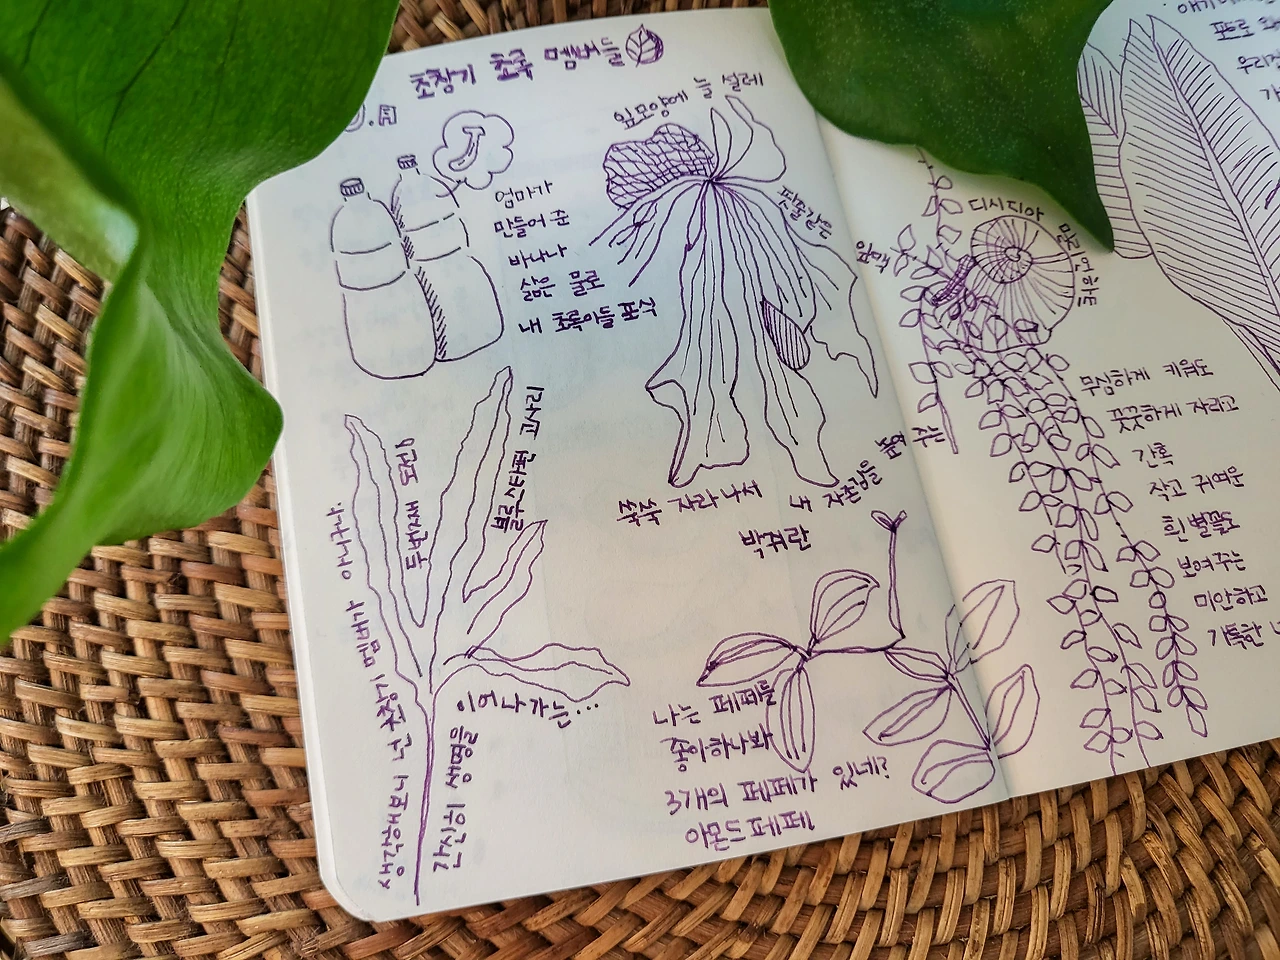 초창기 초록 멤버들
엄마가
만들어 준
바나나
삶은 물로
내 초록이들 포식
잎모양에 늘 설레
쭉쭉 자라나서 내 자존감을 높여 주는
박쥐란
생각해보니 넌 초창기 멤버가 아니구나.
두번째 도전
블루스타펀
간신히 생명을
이어나가는...
나는 페페를
좋아하나봐
3개의 페페가 있네?
아몬드페페
디시디아
밀리언하트
무심하게 키워도
꿋꿋하게 자라고
간혹
작고 귀여운
흰 별꽃도
보여주는
미안하고
기특한
우리집